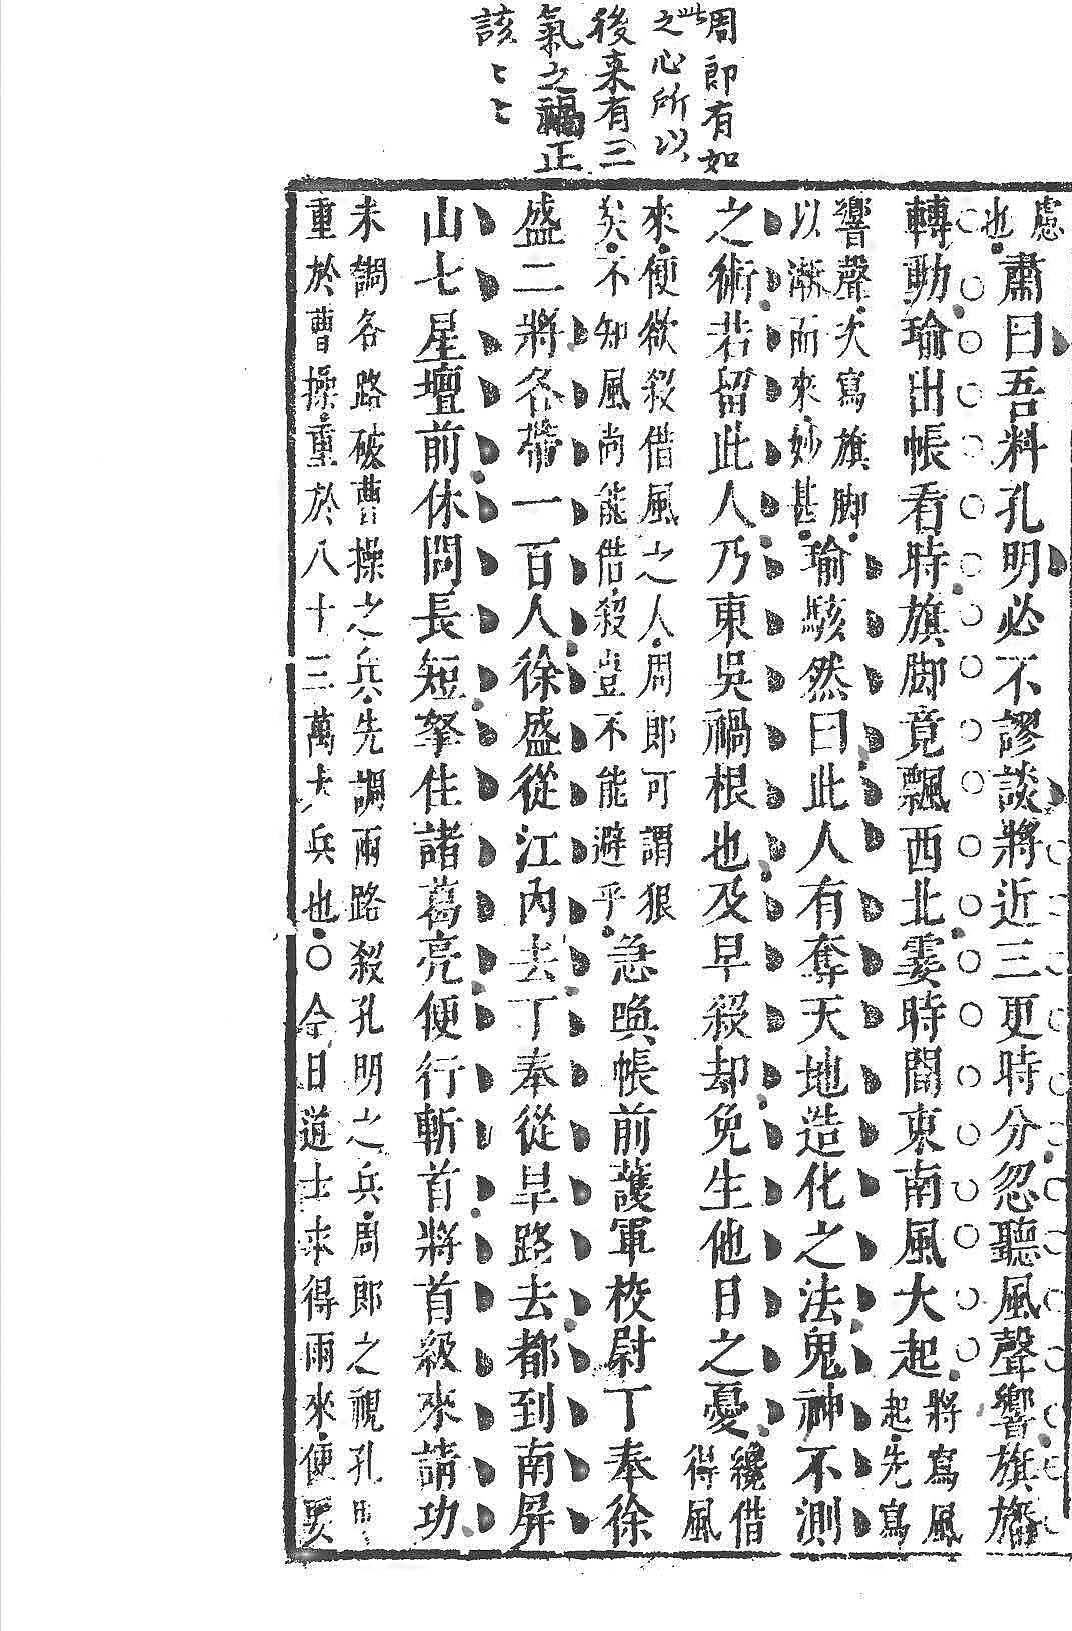 周郎有如
此之心所以
後来有三
氣之禍正
該〻〻
慮也肅曰吾料孔明必不謬談將近三更時分忽聽風聲響旗旛
轉動瑜出帳看時旗脚竟飄西北霎時間東南風大起將寫風起先寫
響聲次寫旗脚以漸而來妙甚瑜駭然曰此人有奪天地造化之法鬼神不測
之術若留此人乃東吳禍根也及早殺却免生他日之憂纔借得風
來便欲殺借風之人周郎可謂狠矣不知風尚能借殺豈不能避乎急喚帳前護軍校尉丁奉徐
盛二將各帶一百人徐盛從江內去丁奉從旱路去都到南屏
山七星壇前休問長短拏住諸葛亮便行斬首將首級來請功
未調各路破曹操之兵先調兩路殺孔明之兵周郎之視孔明
重於曹操重於八十三萬大兵也○今日道士求得雨來便要